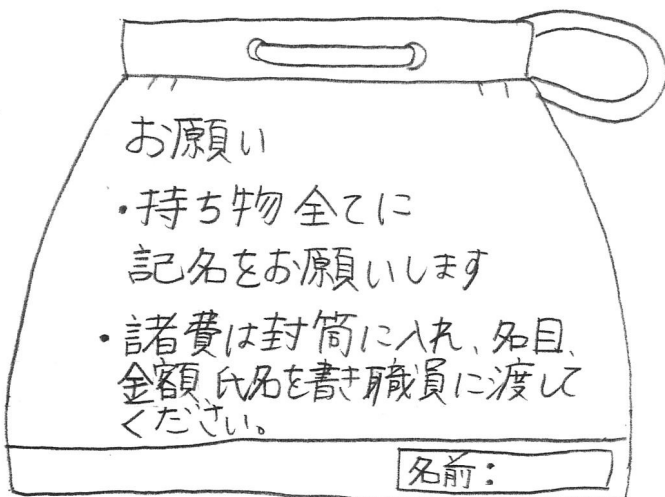 お願い
・持ち物全てに
記名をお願いします
・諸費は封筒に入れ、名目、
金額 氏名を書き職員に渡して
ください。
名前：